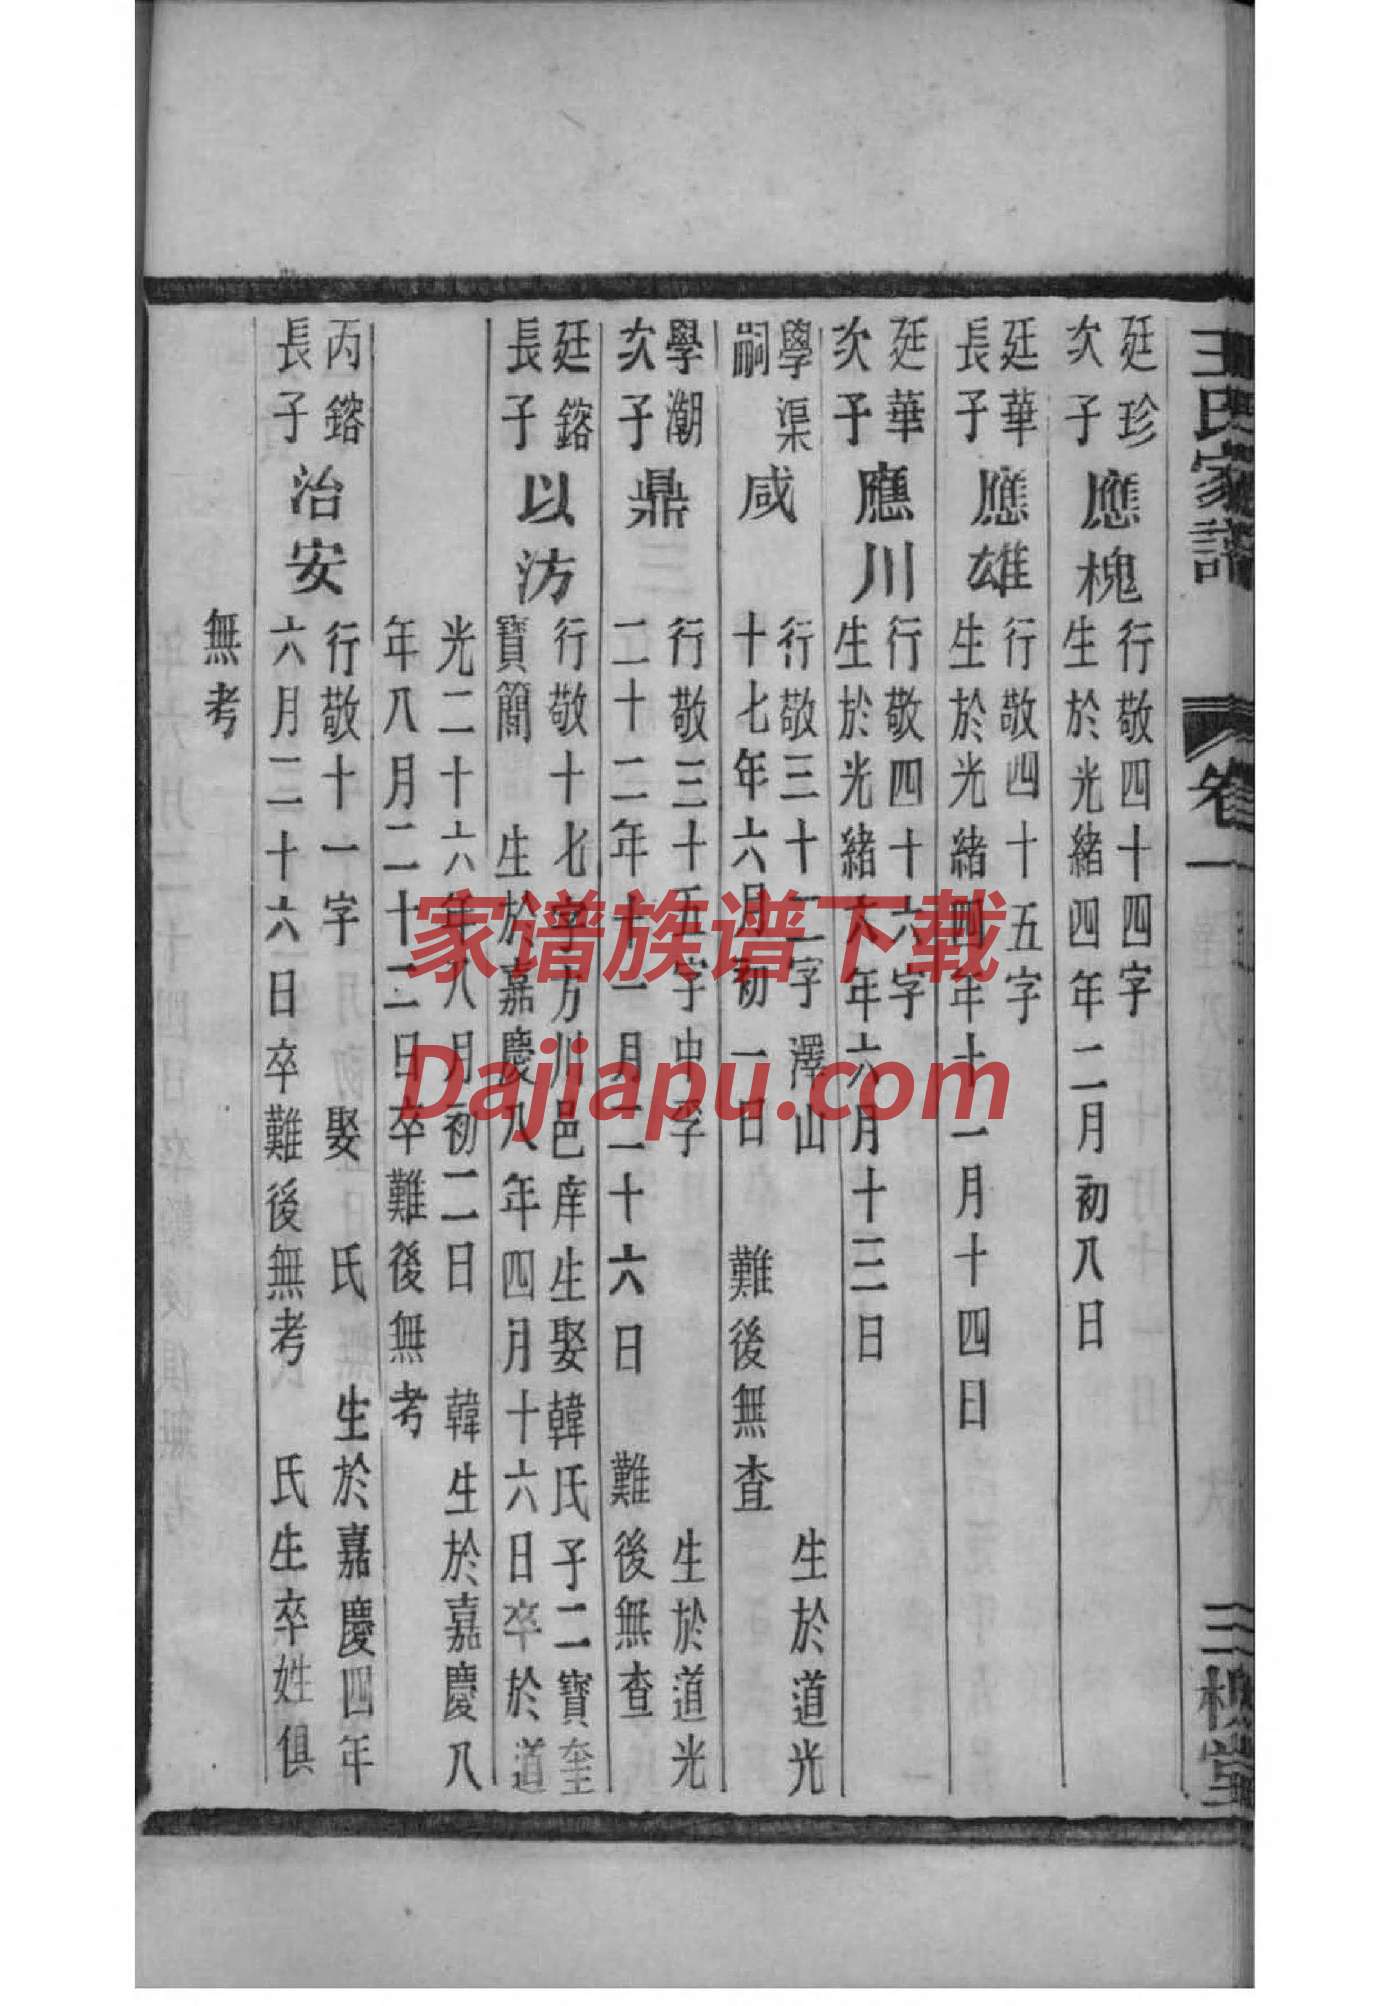 王氏家譜 卷一 三槐堂
廷珍
次子
應槐
行敬四十四字
生於光緒四年二月初八日
廷華
長子
應雄
行敬四十五字
生於光緒四年十一月十四日
廷華
次子
應川
行敬四十六字
生於光緒六年六月十三日
學渠
嗣
咸
行敬三十二字澤山 生於道光
十七年六月初一日 難後無查
學潮
次子
鼎
行敬三十五字中孚 生於道光
二十二年十一月二十六日 難後無查
廷鎔
長子
以汸
行敬十七字方川邑庠生娶韓氏子二寶奎
寶簡 生於嘉慶八年四月十六日卒於道
光二十六年八月初二日 韓生於嘉慶八
年八月二十二日卒難後無考
丙鎔
長子
治安
行敬十一字 娶 氏 生於嘉慶四年
六月二十六日卒難後無考 氏生卒姓俱
無考
家谱族谱下载
Dajiapu.com